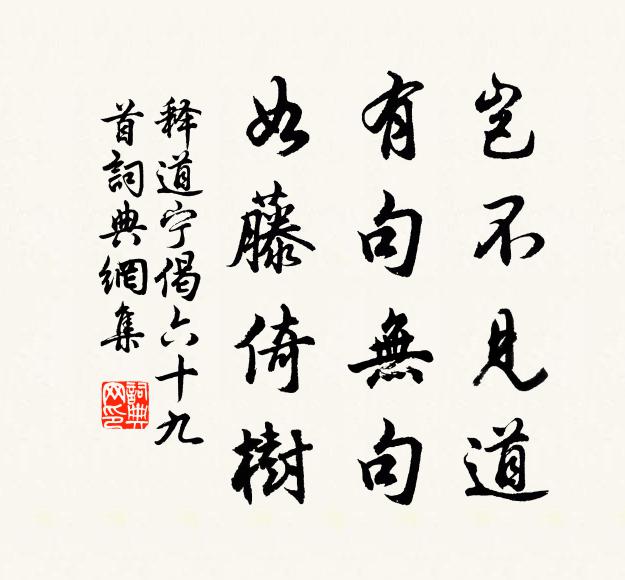 岂不見道
有句無句
如藤倚樹
释道宁偈六十九
首詞典網集
詞典网印